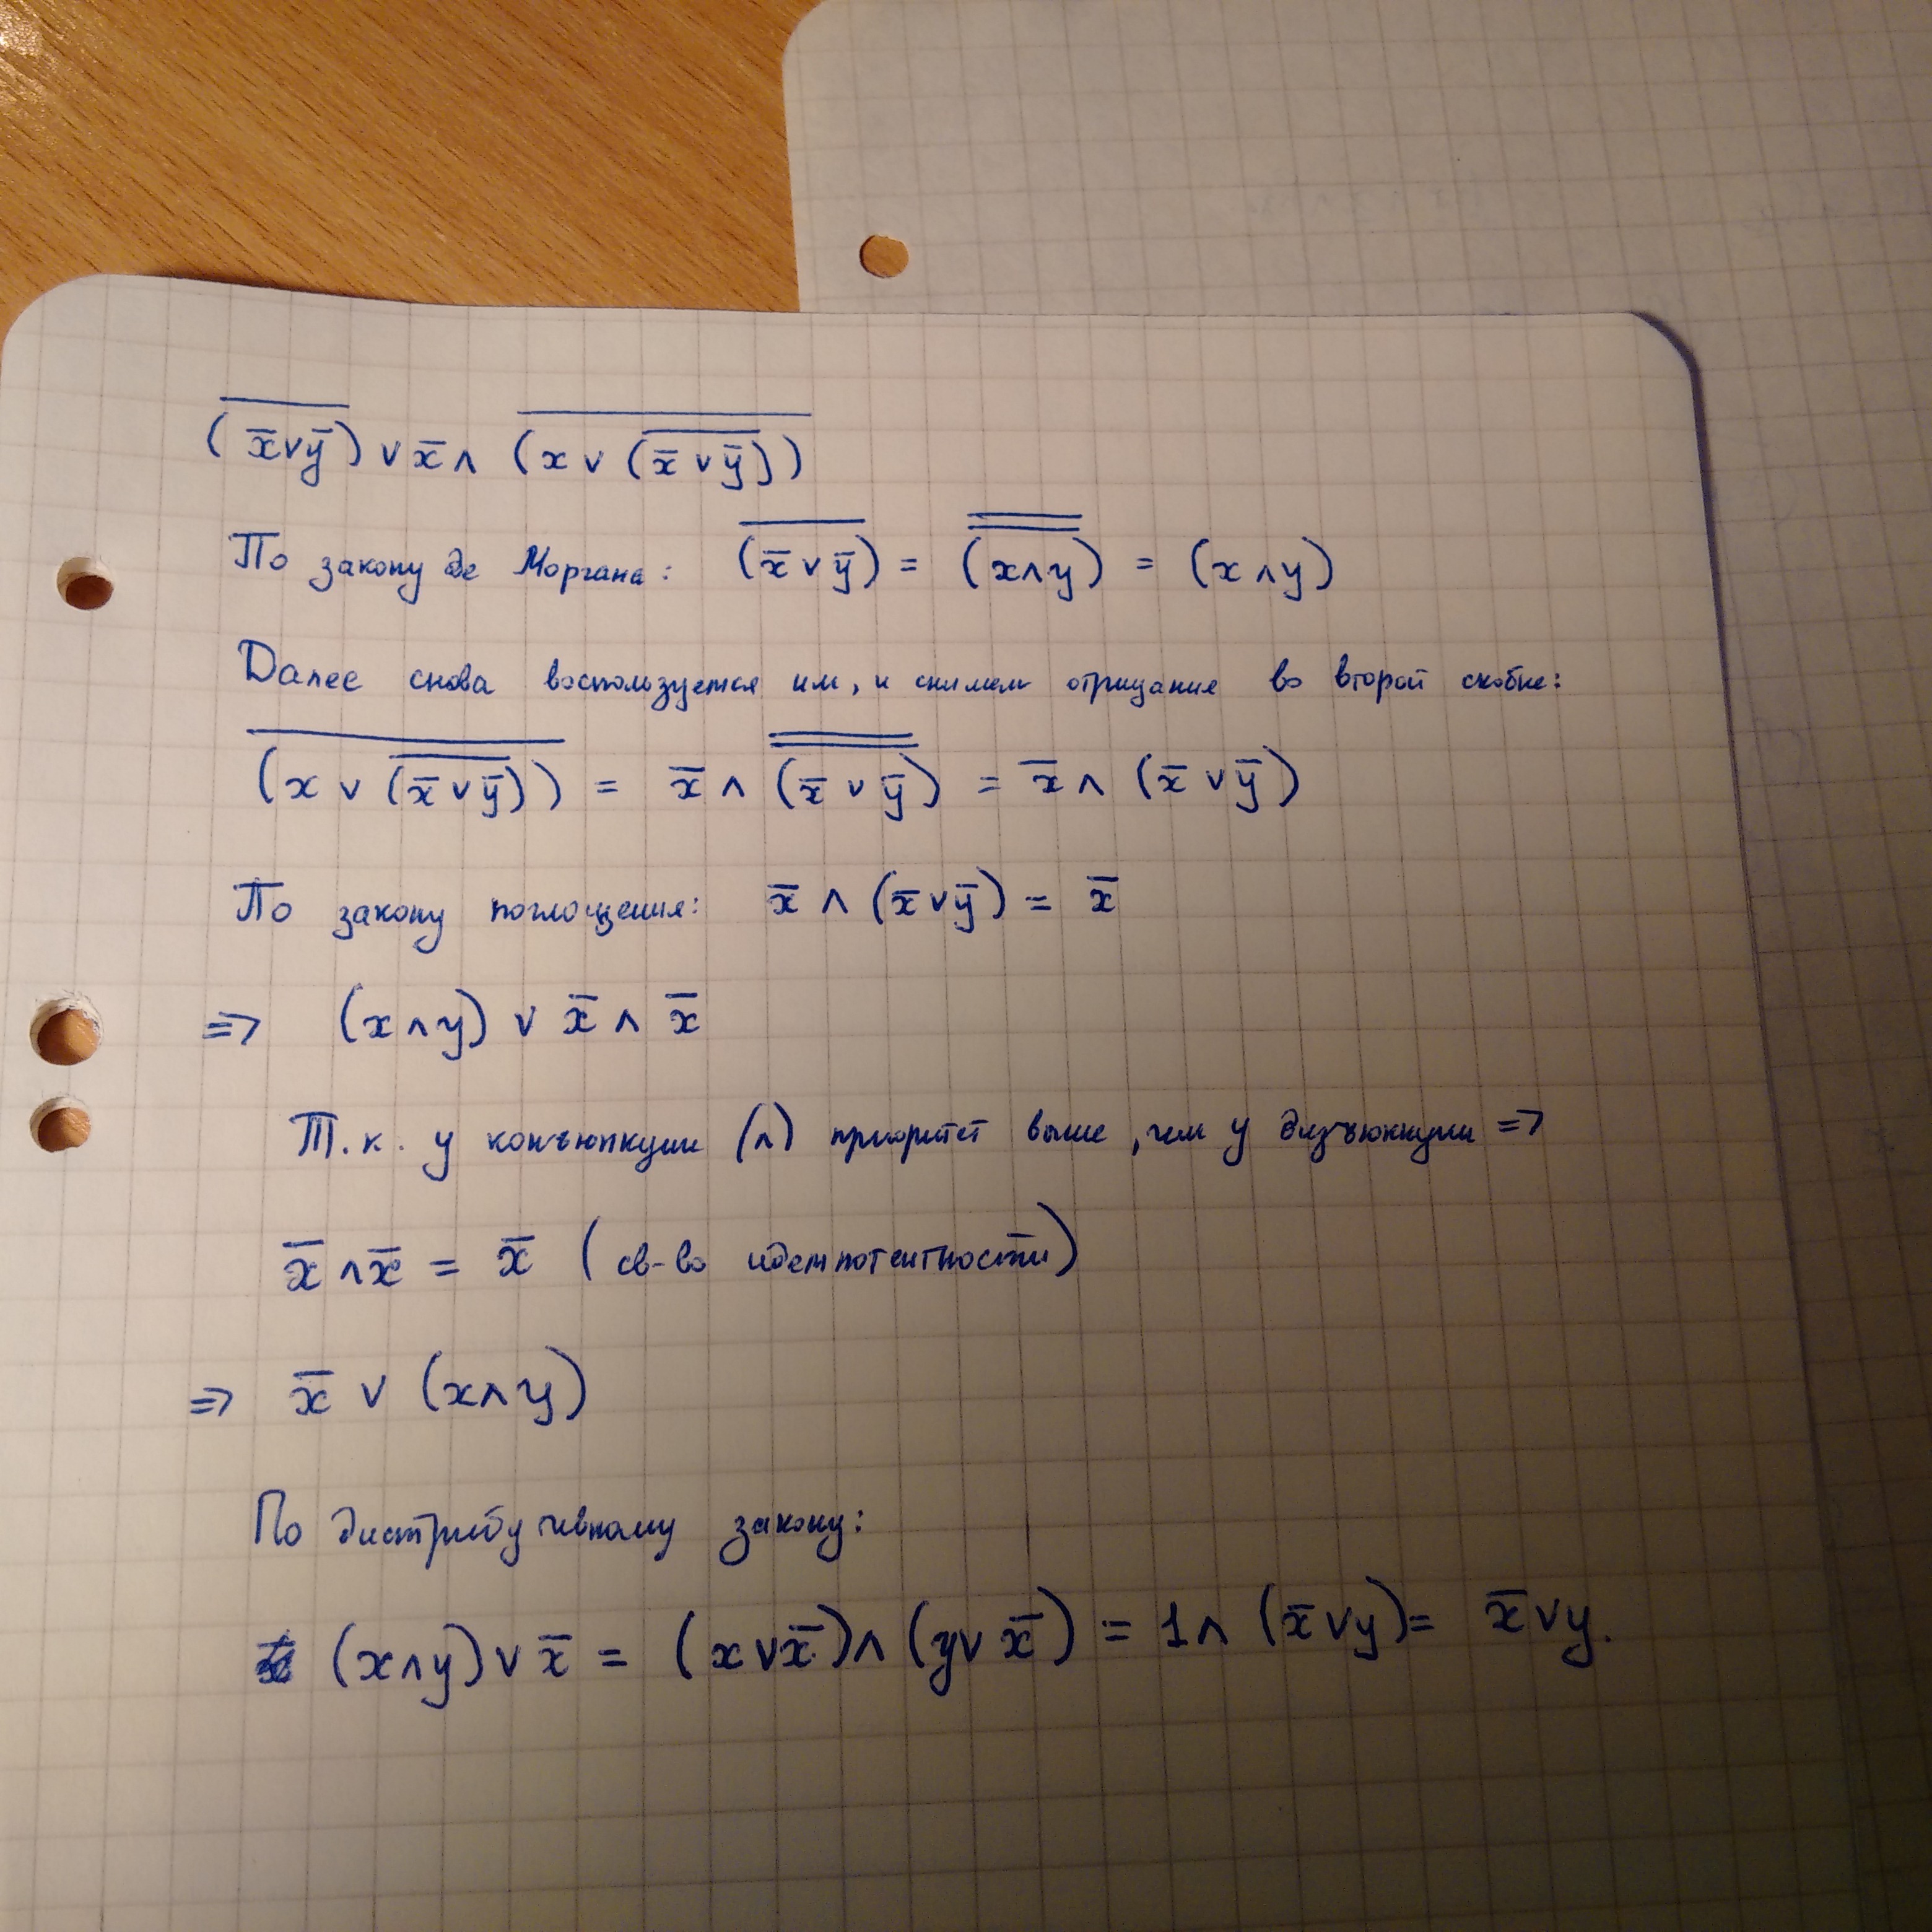 (x̅∨y̅)̅ ∨ x̅ ∧ (x ∨ (x̅ ∨ y̅)̅)̅
По закону де Моргана: (x̅ ∨ y̅)̅ = (x∧y)̿ = (x∧y)
Далее снова воспользуемся им, и снимем отрицание во второй скобке:
(x ∨ (x̅ ∨ y̅)̅)̅ = x̅ ∧ (x̅ ∨ y̅)̿ = x̅ ∧ (x̅ ∨ y̅)
По закону поглощения: x̅ ∧ (x̅ ∨ y̅) = x̅
=> (x∧y) ∨ x̅ ∧ x̅
Т.к. у конъюнкции (∧) приоритет выше, чем у дизъюнкции =>
x̅ ∧ x̅ = x̅ (св-во идемпотентности)
=> x̅ ∨ (x∧y)
По дистрибутивному закону:
(x∧y) ∨ x̅ = (x∨x̅)∧(y∨x̅) = 1∧(x̅∨y) = x̅∨y.